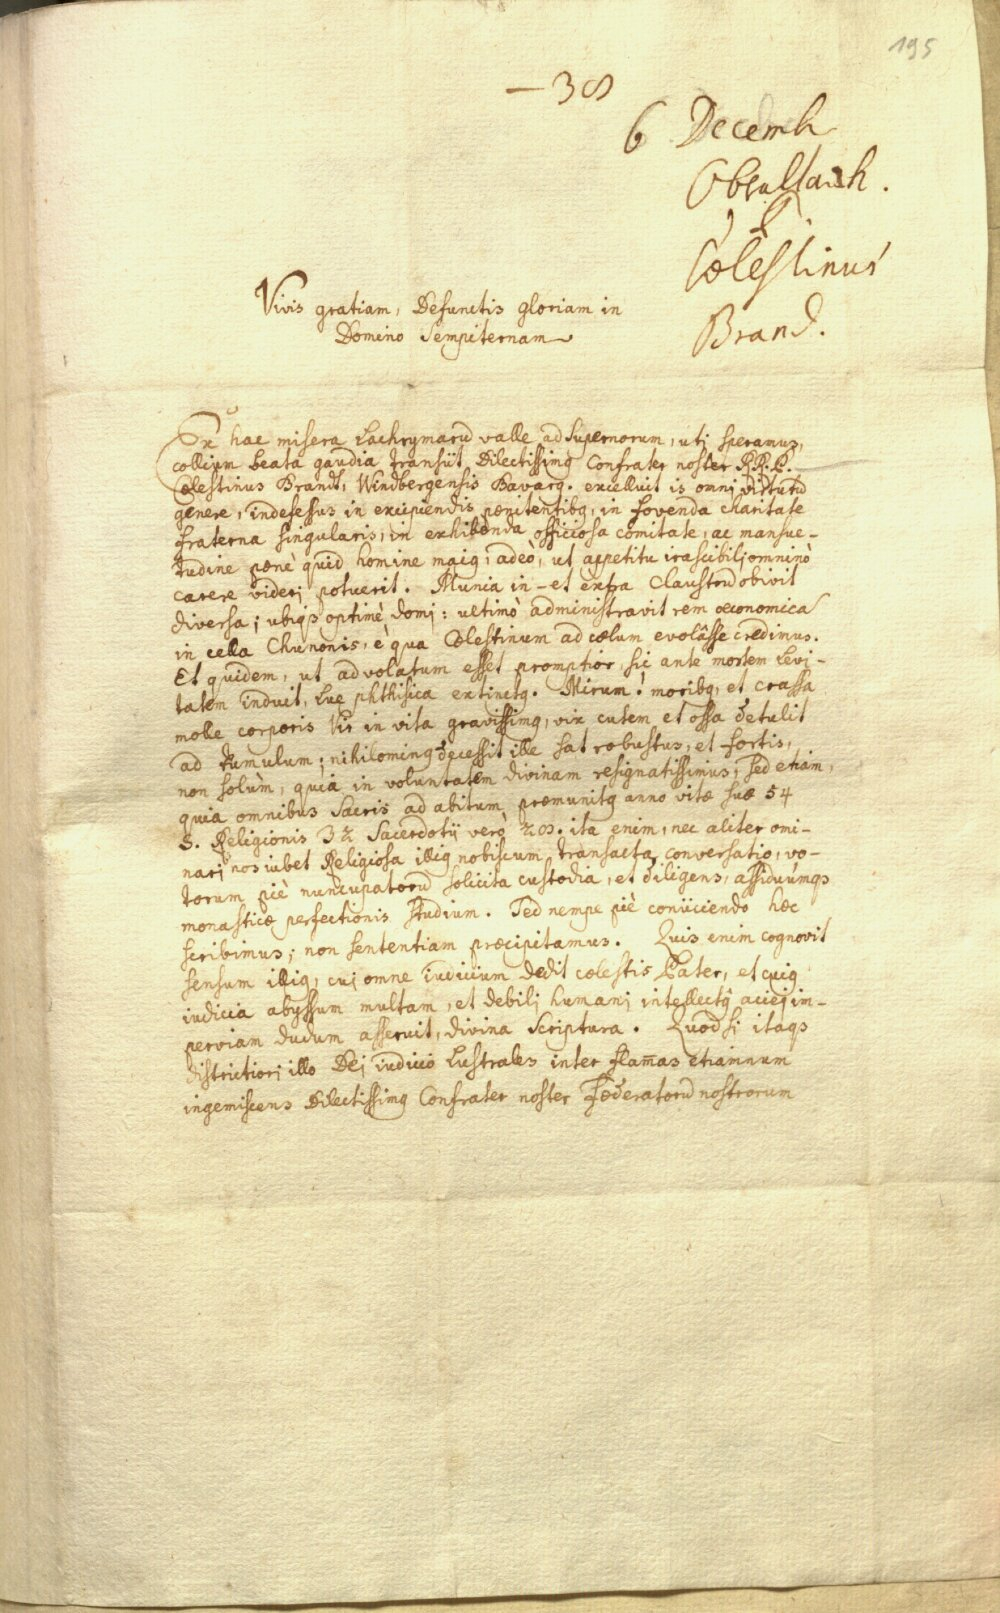 195
— 38
6 Decemb.
Oberaltach.
P.
Cölestinus
Brand.
Vivis gratiam, Defunctis gloriam in
Domino Sempiternam
Ex hac misera Lachrymarū valle ad supernorum, utj speramus,
collium beata gaudia transijt Dilectissimq Confrater noster R.R.P.
Cœlestinus Brandt, Windbergensis Bavarq. excelluit is omni virtutū
genere, indefessus in excipiendis pœnitentibq, in fovenda charitate
fraterna singularis, in exhibenda officiosa comitate, ac mansue-
tudine pœnè quid homine maiq, adeò, ut appetitu irascibilj omninò
carere viderj potuerit. Munia in- et extra Claustrū obivit
diversa; ubiqs optimè domj: ultimò administravit rem œconomicā
in cella Chunonis, è qua Cœlestinum ad cœlum evolâsse credimus.
Et quidem, ut ad volatum esset promptior, sic ante mortem levi-
tatem induit, lue phthisica extinctq. Mirum! moribq, et crassa
mole corporis Vir in vita gravissimq, vix cutem et ossa detulit
ad tumulum; nihilominq decessit ille sat robustus, et fortis,
non solùm, quia in voluntatem divinam resignatissimus, sed etiam,
quia omnibus Sacris ad abitum præmunitq anno vitæ suæ 54
S. Religionis 32 Sacerdotij verò 28. ita enim, nec aliter omi-
narj nos iubet Religiosa illiq nobiscum transacta conversatio, vo-
torum piè nuncupatorū solicita custodia, et diligens, assiduúmqs
monasticæ perfectionis studium. Sed nempe piè conijciendo hæc
scribimus; non sententiam præcipitamus. Quis enim cognovit
sensum illiq, cuj omne iudicium dedit cælestis Pater, et cuiq
iudicia abyssum multam, et debilj humanj intellectq aciej im-
perviam dudum asseruit, divina Scriptura. Quod si itaqs
districtiorj illo Dej iudicio Lustrales inter flam̄as etiamnum
ingemiscens Dilectissimq Confrater noster Fœderatorū nostrorum